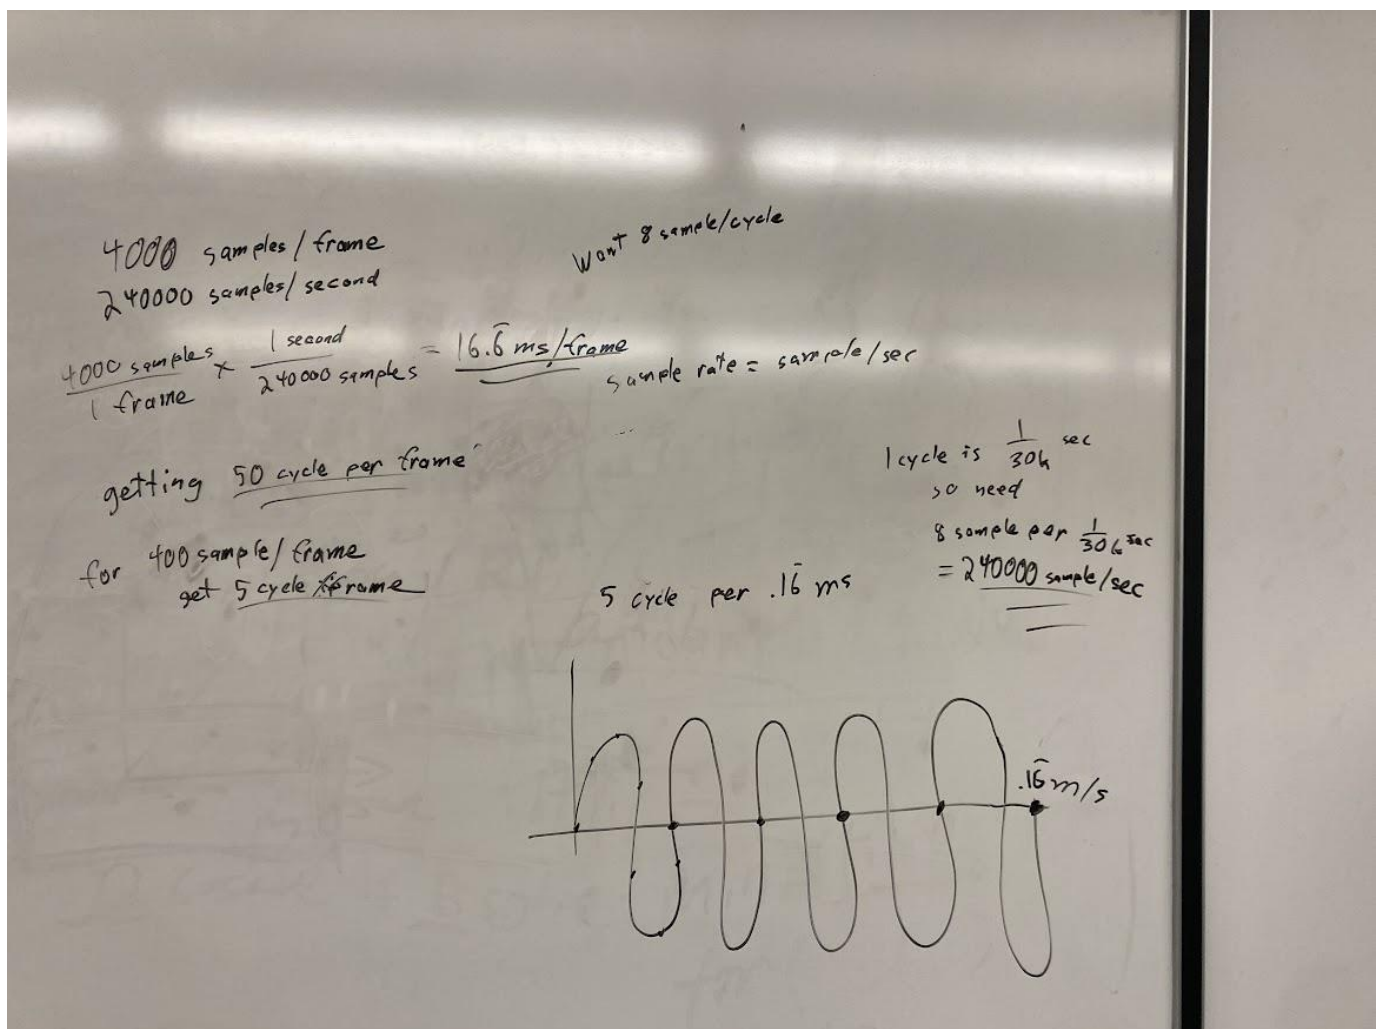 4000 samples/frame
240000 samples/second
4000 samples / 1 frame × 1 second / 240000 samples = 16.6̅ ms/frame
getting 50 cycle per frame
for 400 sample/frame
get 5 cycle frame
Want 8 sample/cycle
sample rate = sample/sec
1 cycle is 1/30k sec
so need
8 sample per 1/30k sec
= 240000 sample/sec
5 cycle per .16̅ ms
.16̅ m/s